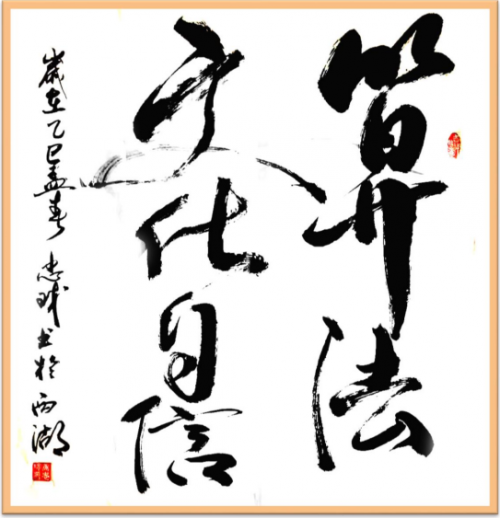 算法
文化自信
歲在乙巳孟春 忠球书於西湖